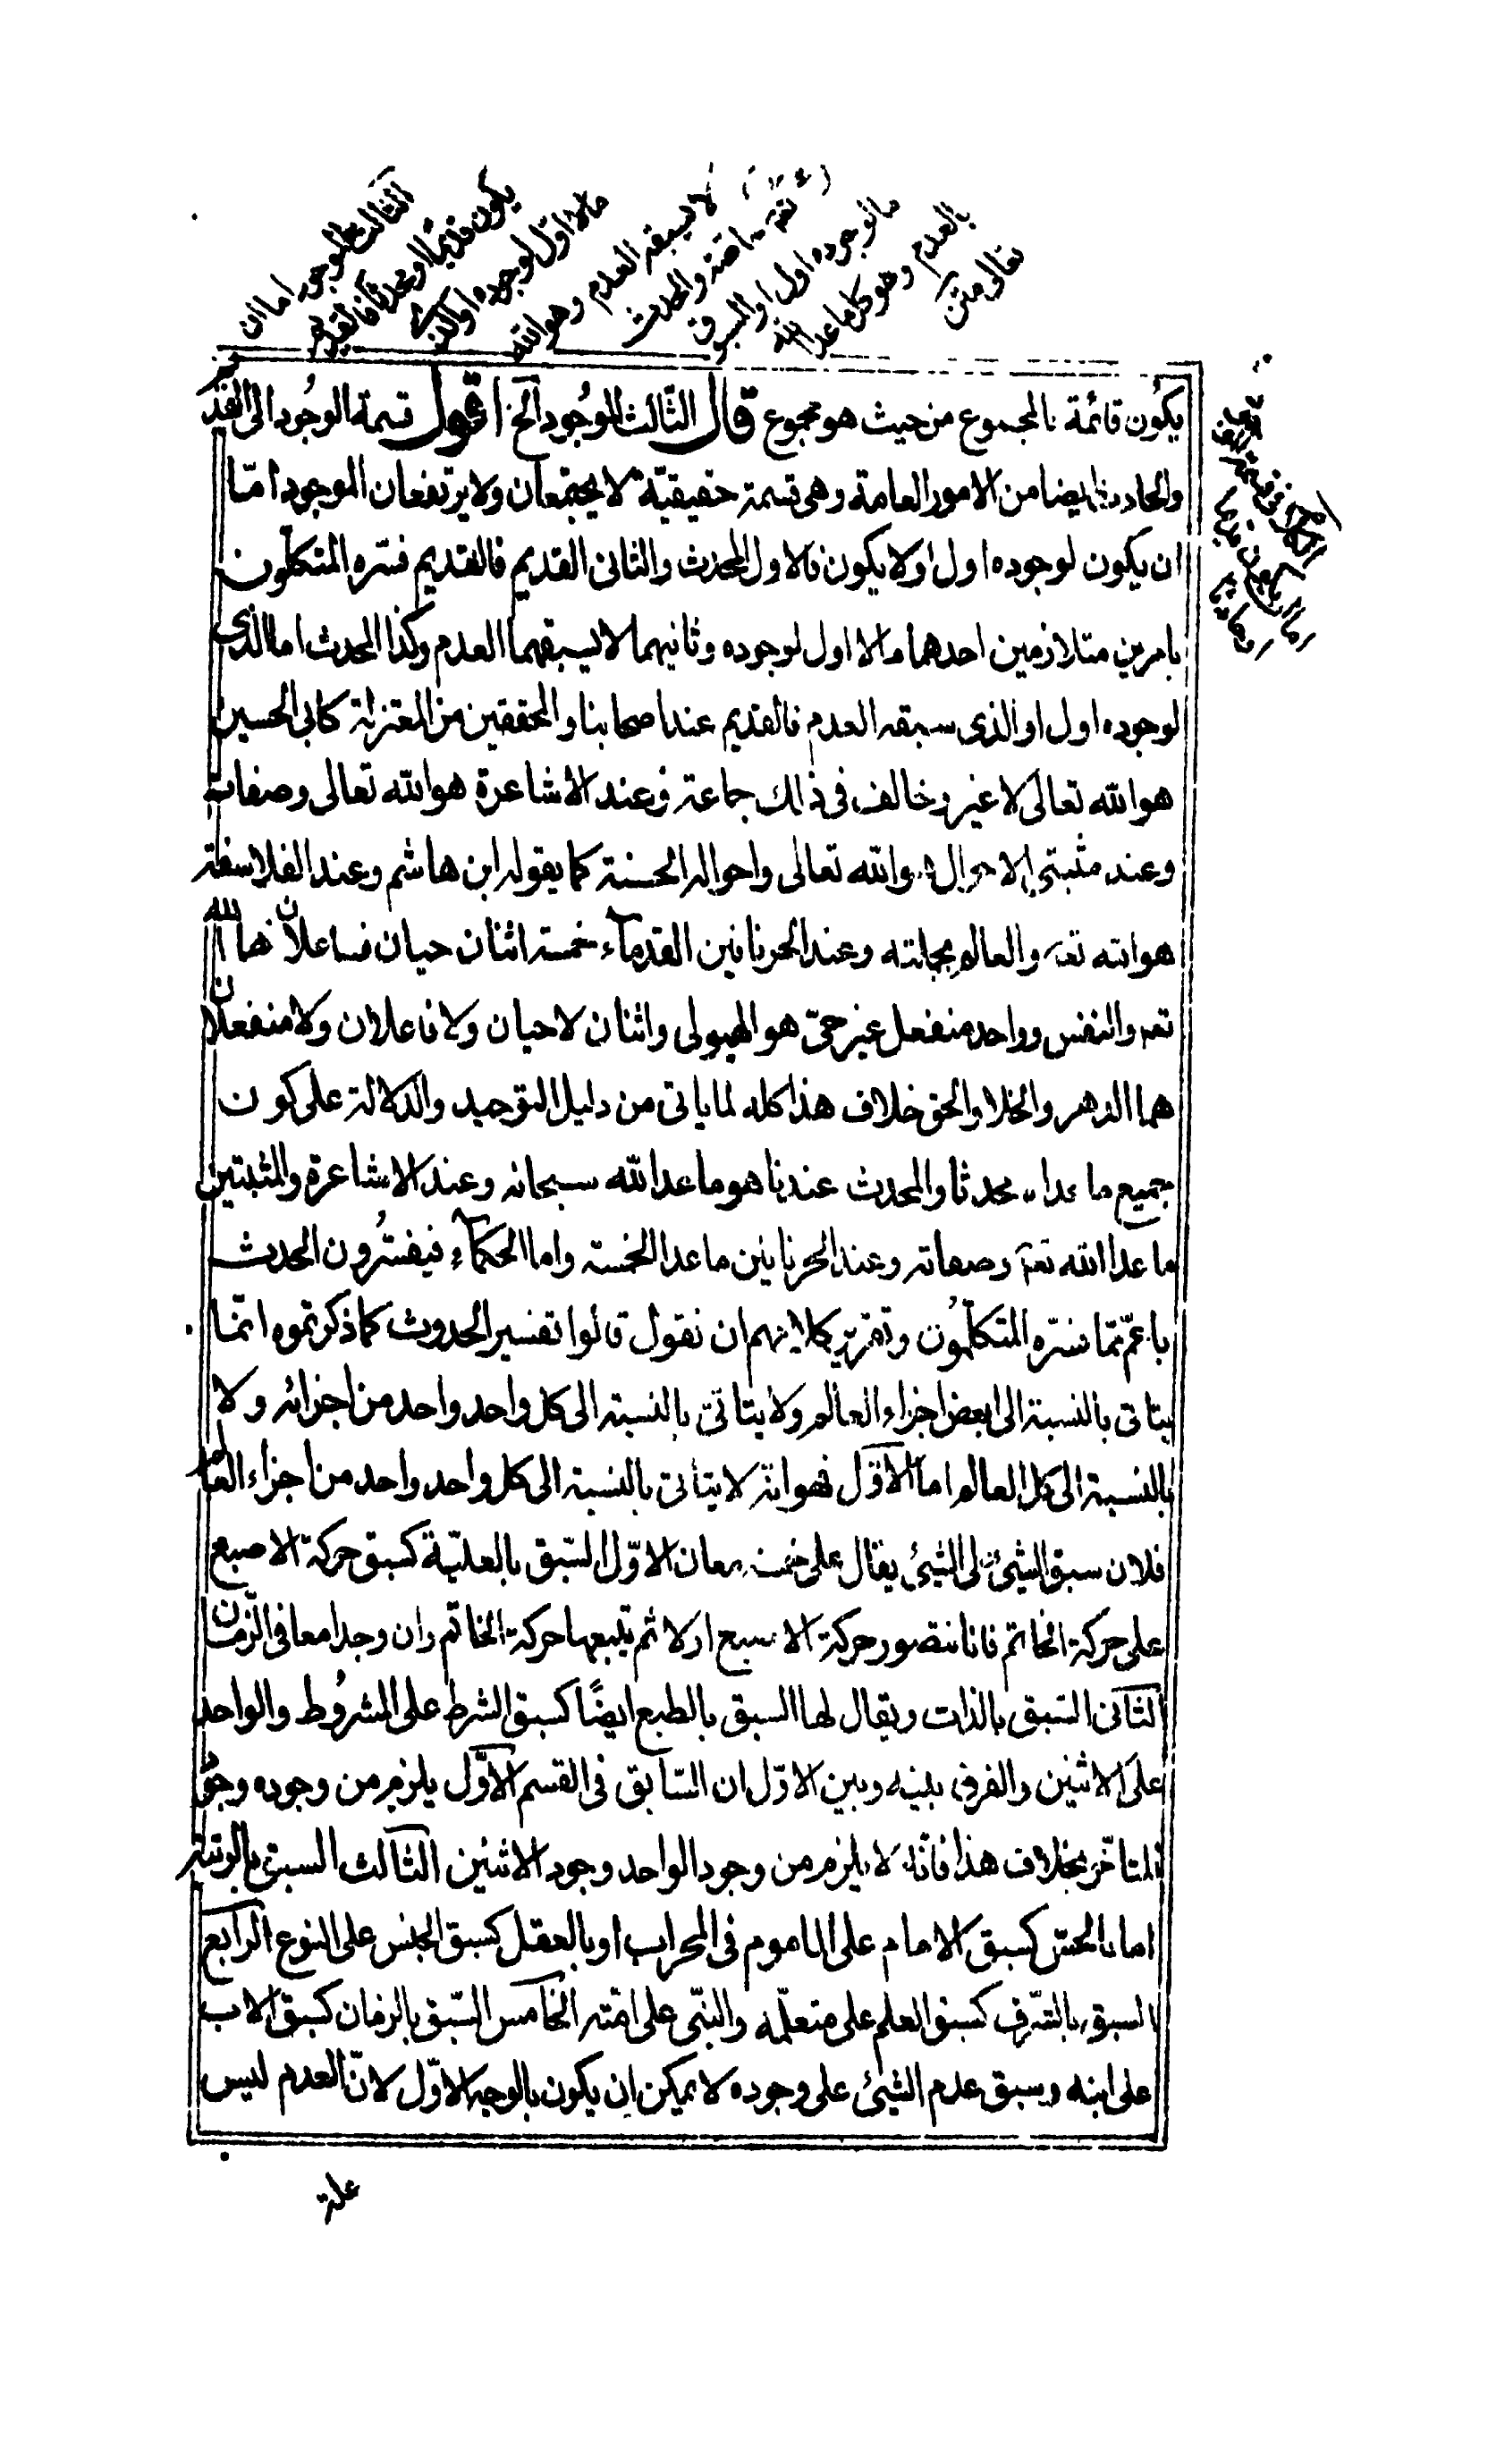 الثالث الموجود اما ان
يكون قديما او محدثا فالقديم
ما لا اول لوجوده او الذي
لا يسبقه العدم وهو الله
تعه خاصة والمحدث
ما لوجوده اول او المسبوق
بالعدم وهو كل ما عدا الله
تعالى متن
يكون قائمة بالمجموع من حيث هو مجموع قال الثالث الموجود الخ اقول قسمة الوجود الى القديم
والحادث ايضا من الامور العامة وهى قسمة حقيقيّة لا يجتمعان ولا يرتفعان الموجود امّا
ان يكون لوجوده اول او لا يكون فالاول المحدث والثانى القديم فالقديم فسّره المتكلّمون
بامرين متلازمين احدهما ما لا اول لوجوده وثانيهما لا يسبقهما العدم وكذا المحدث اما الذى
لوجوده اول او الذى سبقه العدم فالقديم عند اصحابنا والمحققين من المعتزلة كابى الحسين
هو الله تعالى لا غير وخالف فى ذلك جماعة فعند الأشاعرة هو الله تعالى وصفاته
وعند مثبتى الاحوال هو الله تعالى واحواله الحسنة كما يقوله ابن هاشم وعند الفلاسفة
هو الله تعه والعالم بجملته وعند الحرنانين القدمآء خمسة اثنان حيان فاعلان هما الله
تعه والنفس وواحد منفعل غير حىّ هو الهيولى واثنان لا حيان ولا فاعلان ولا منفعلان
هما الدهر والخلا والحق خلاف هذا كله لما ياتى من دليل التوحيد والدلالة على كون
جميع ما عداه محدثا والمحدث عندنا هو ما عدا الله سبحانه وعند الاشاعرة والمثبتين
ما عدا الله تعه وصفاته وعند الحرنانين ما عدا الخمسة واما الحكمآء فيفسّرون المحدث
باعمّ ممّا فسّره المتكلّمون وتقرير كلامهم ان نقول قالوا تفسير الحدوث كما ذكرتموه انّما
يتاتى بالنسبة الى بعض اجزاء العالم ولا يتاتى بالنسبة الى كل واحد واحد من اجزائه ولا
بالنسبة الى كل العالم اما الاوّل فهو انّه لا يتاتى بالنسبة الى كل واحد واحد من اجزاء العالم
فلان سبق الشيئ على الشيئ يقال على خمسة معان الاوّل السّبق بالعليّة كسبق حركة الاصبع
على حركة الخاتم فانا نتصور حركة الاصبع اولا ثم يتبعها حركة الخاتم وان وجدا معا فى الزّمان
الثانى السّبق بالذات ويقال لها السبق بالطبع ايضًا كسبق الشرط على المشرُوط والواحد
على الاثنين والفرق بينه وبين الاوّل ان السّابق فى القسم الاوّل يلزم من وجوده وجود
المتاخّر بخلاف هذا فانّه لا يلزم من وجود الواحد وجود الاثنين الثالث السبق بالرتبة
اما بالحسّ كسبق الامام على الماموم فى المحراب او بالعقل كسبق الجنس على النوع الرابع
السبق بالشّرف كسبق المعلم على متعلّمه والنبّى على امّته الخامس السّبق بالزمان كسبق الاب
على ابنه وسبق عدم الشيئ على وجوده لا يمكن ان يكون بالوجه الاوّل لانّ العدم ليس
علة